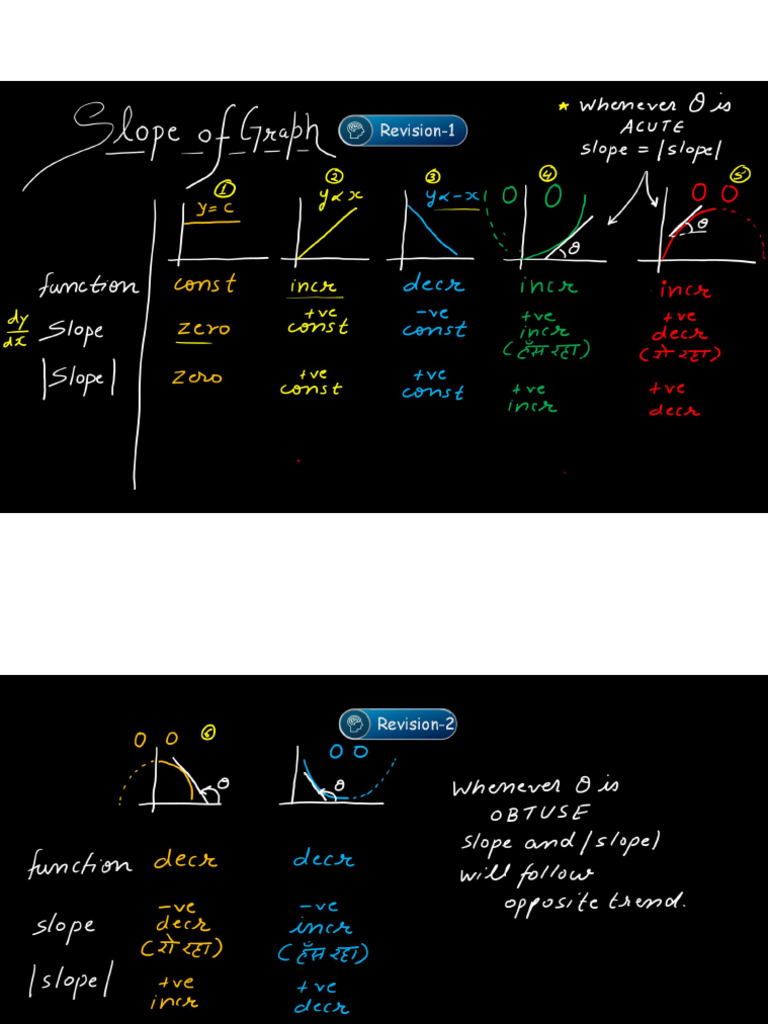 Slope of Graph
Revision-1
* Whenever θ is
ACUTE
slope = |slope|
① ② ③ ④ ⑤
y = c
y ∝ x
y ∝ -x
θ
θ
function const incr decr incr incr
dy/dx Slope zero +ve const -ve const +ve incr (हँस रहा) +ve decr (रो रहा)
|Slope| zero +ve const +ve const +ve incr +ve decr
Revision-2
⑥
θ
θ
Whenever θ is
OBTUSE
slope and |slope|
will follow
opposite trend.
function decr decr
slope -ve decr (रो रहा) -ve incr (हँस रहा)
|slope| +ve incr +ve decr